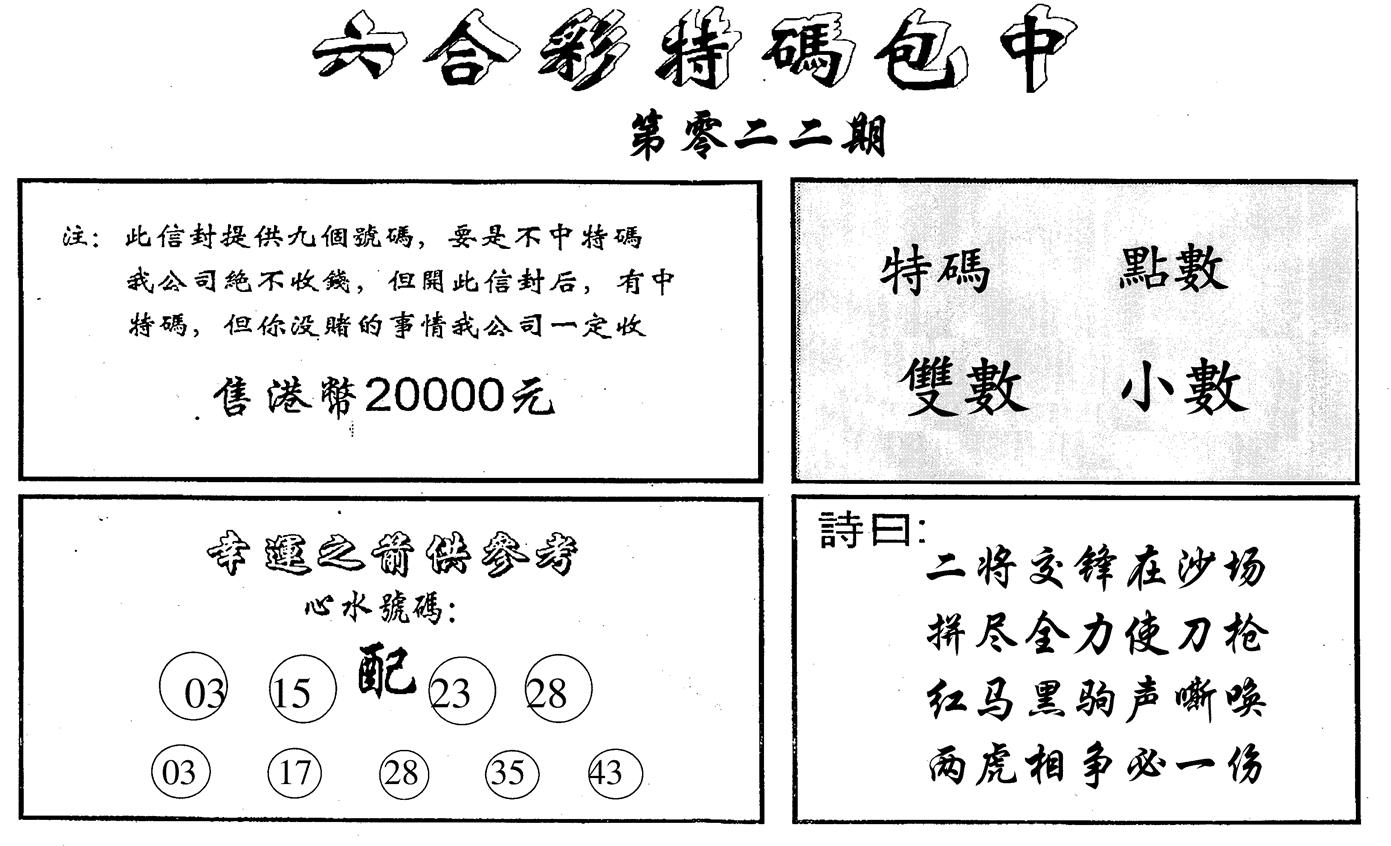 六合彩特碼包中
第零二二期
注：此信封提供九個號碼，要是不中特碼
我公司絶不收錢，但開此信封后，有中
特碼，但你没賭的事情我公司一定收
售港幣20000元
特碼 點數
雙數 小數
幸運之箭供參考
心水號碼：
03 15 配 23 28
03 17 28 35 43
詩曰：
二将交锋在沙场
拼尽全力使刀枪
红马黑驹声嘶唤
两虎相争必一伤